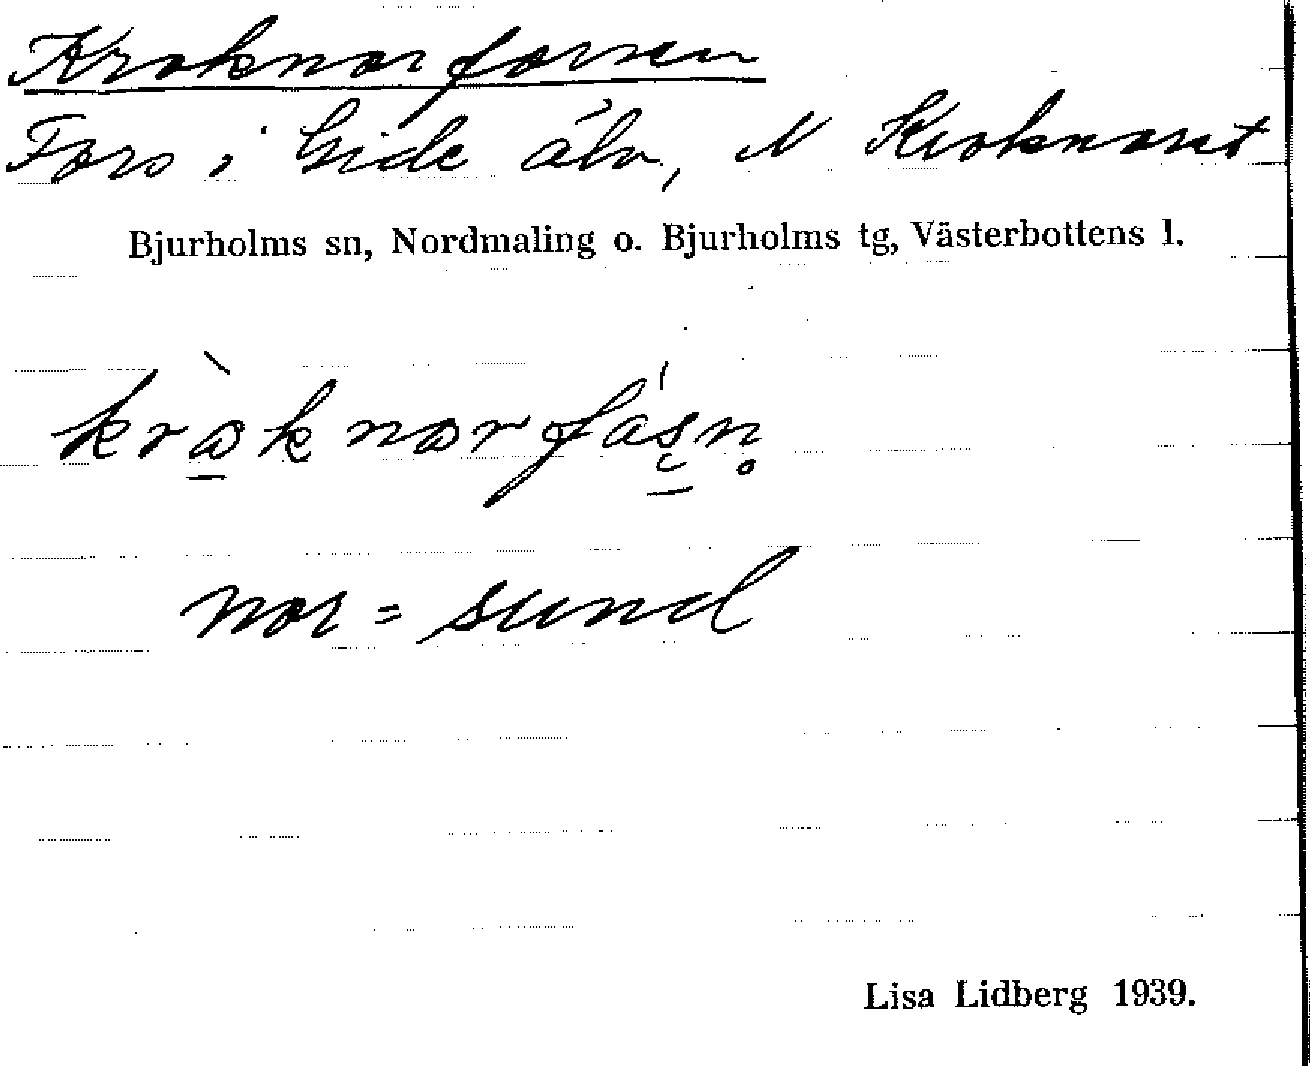 Kroknorforsen
Fors i Gide älv, N Kroknoret
Bjurholms sn, Nordmaling o. Bjurholms tg, Västerbottens l.
kròknorfás̨n̥
nor = sund
Lisa Lidberg 1939.